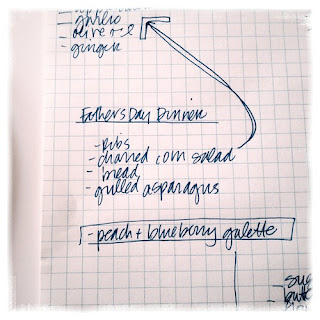 - garlic
- olive oil
- ginger
Fathers Day Dinner
- Ribs
- charred corn salad
- bread
- grilled asparagus
- peach + blueberry galette